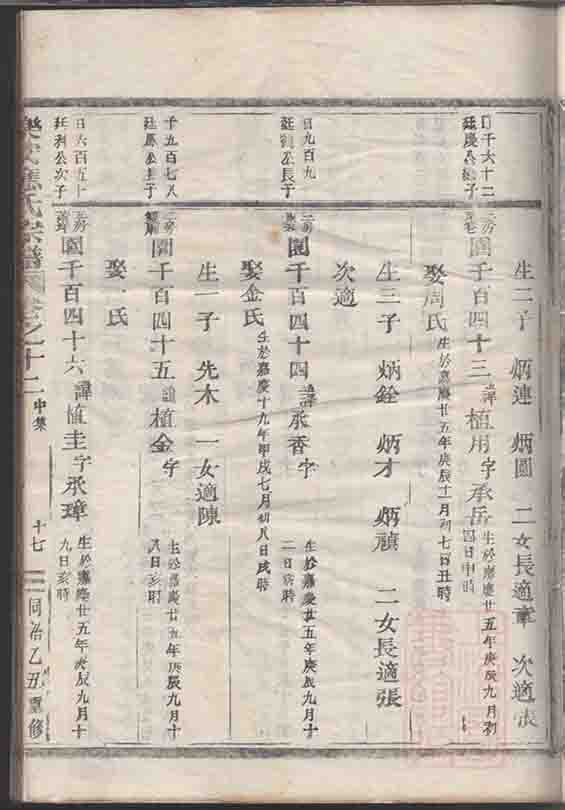 生二子　炳連　炳圖　二女長適章　次適張
日千六十二
廷慶公長子
二房
園千百四十三
諱植用字承岳
生於嘉慶廿五年庚辰九月初
四日申時
娶周氏
生於嘉慶廿五年庚辰十一月初七日丑時
生三子　炳銓　炳才　炳禛　二女長適張
次適
日九百九
廷公長子
二房
園千百四十四
諱承香字
生於嘉慶廿五年庚辰九月十
二日亥時
娶金氏
生於嘉慶十九年甲戌七月初八日戌時
生一子　先木　一女適陳
千五百七
廷公長子
二房
園千百四十五
諱植金字
生於嘉慶廿五年庚辰九月十
八日亥時
娶　氏
日六百五十
廷利公次子
三房
園千百四十六
諱植圭字承璋
生於嘉慶廿五年庚辰九月十
九日亥時
氏宗譜　卷之十二
中集
十七
同治乙丑重修